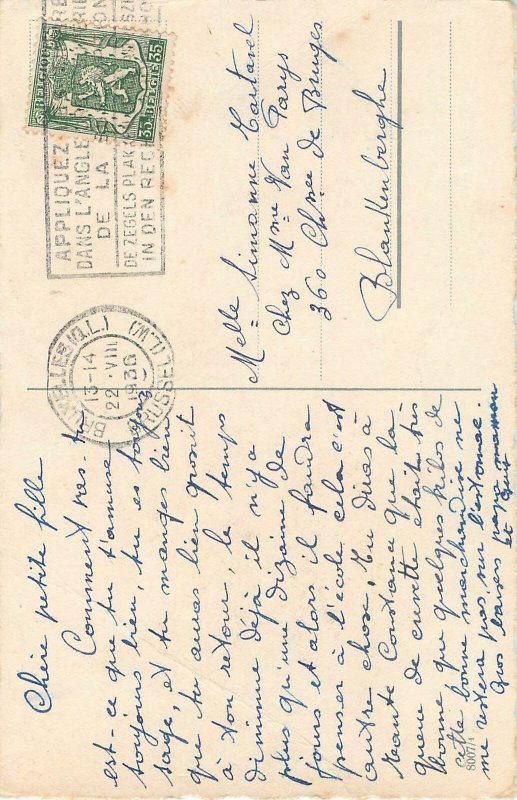 BELGIQUE 35
35 BELGIE
APPLIQUEZ
DANS L'ANGLE
DE LA
DE ZEGELS PLAK
IN DEN REC
BRUXELLES (Q.L.) (W.L.) BRUSSEL
13-14
22 VIII
1936
Melle Simonne Cartavel
Chez Mme Van Parys
360 Chsée de Bruges
Blankenberghe
Chère petite fille
Comment vas-tu
est-ce que tu t'amuse
toujours bien, tu es toujours
sage, et tu manges bien
que tu auras bien grossit
à ton retour, le temps
diminue déjà il n'y a
plus qu'une dizaine de
jours et alors il faudra
penser à l'école cela c'est
autre chose, tu diras à
tante Constance que la
queue de était très
bonne, que quelques kilos de
cette bonne marchandise ne
me restera pas sur l'estomac.
Gros baisers papa maman
et
8007/1